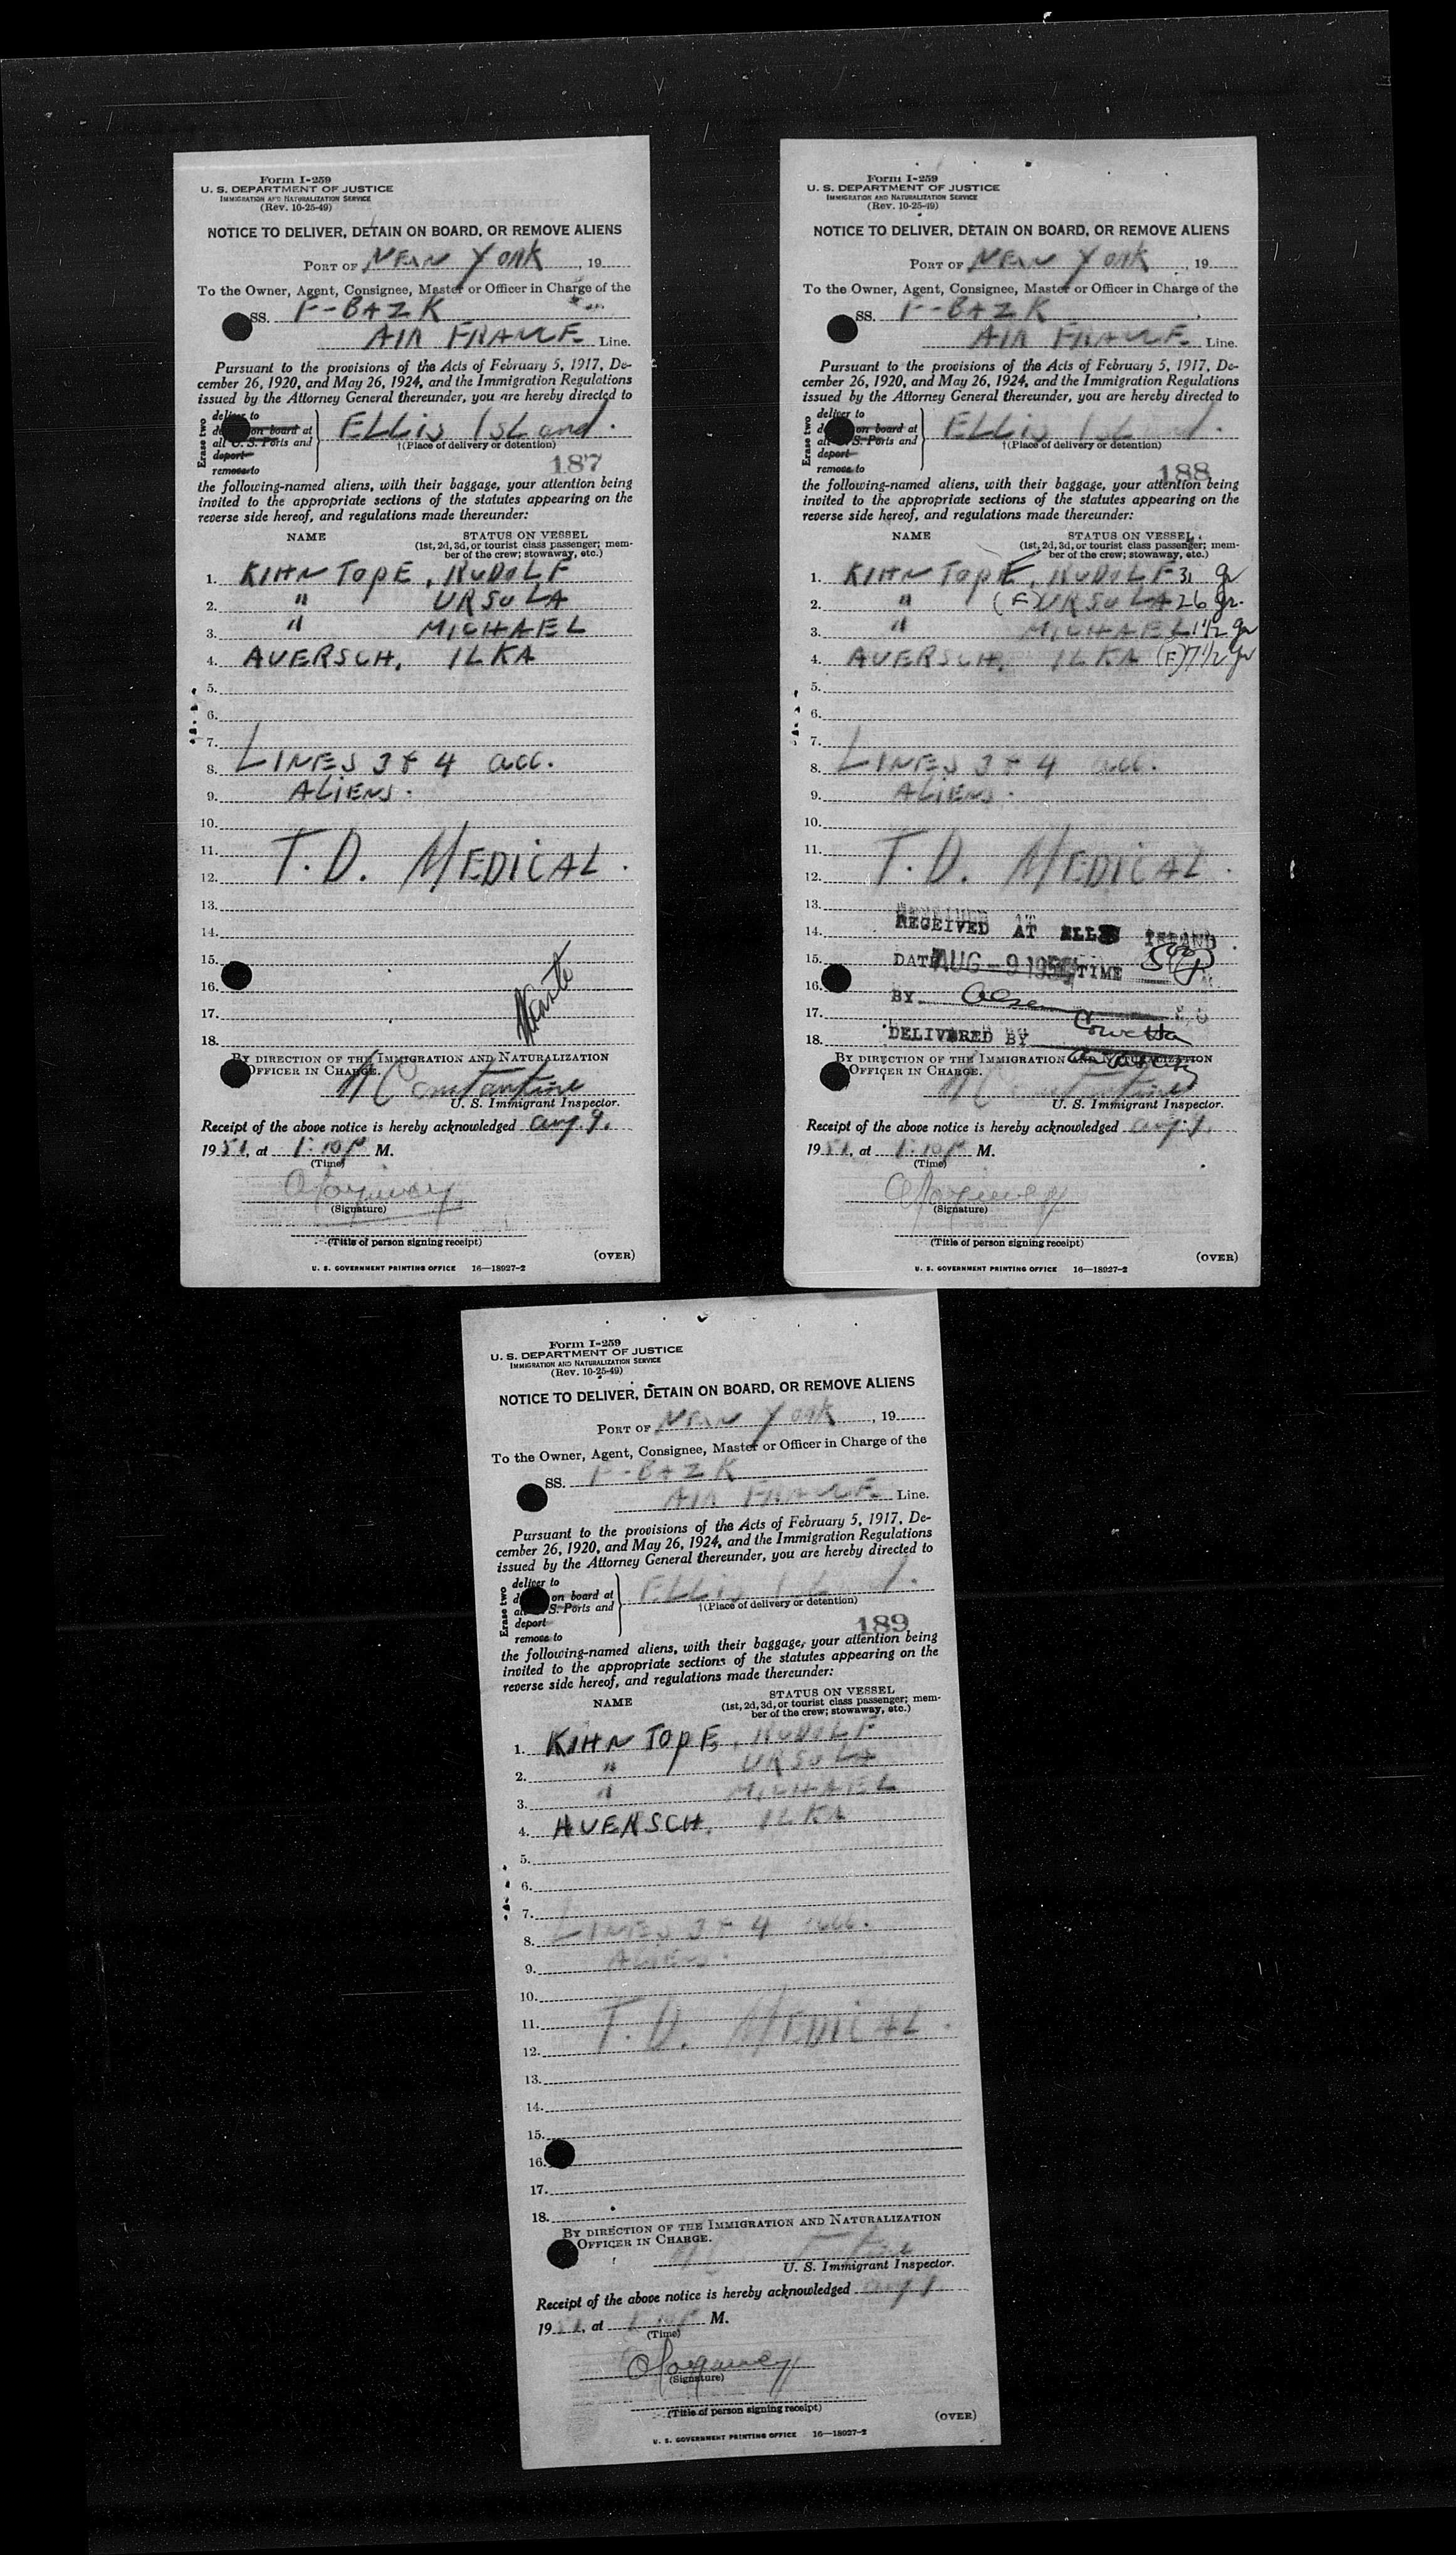 Form I-259
U. S. DEPARTMENT OF JUSTICE
IMMIGRATION AND NATURALIZATION SERVICE
(Rev. 10-25-49)
NOTICE TO DELIVER, DETAIN ON BOARD, OR REMOVE ALIENS
PORT OF NEW YORK, 19
To the Owner, Agent, Consignee, Master or Officer in Charge of the
SS. F-BAZK
AIR FRANCE Line.
Pursuant to the provisions of the Acts of February 5, 1917, De-
cember 26, 1920, and May 26, 1924, and the Immigration Regulations
issued by the Attorney General thereunder, you are hereby directed to
Erase two
deliver to
on board at
all U. S. Ports and
deport
remove to
ELLIS ISLand.
†(Place of delivery or detention)
187
the following-named aliens, with their baggage, your attention being
invited to the appropriate sections of the statutes appearing on the
reverse side hereof, and regulations made thereunder:
NAME STATUS ON VESSEL
(1st, 2d, 3d, or tourist class passenger; mem-
ber of the crew; stowaway, etc.)
1. KIHN TOPE, RUDOLF
2. " URSULA
3. " MICHAEL
4. AUERSCH, ILKA
5.
6.
7.
8. LINES 3 & 4 acc.
9. ALIENS.
10.
11.
12. T.D. MEDICAL.
13.
14.
15.
16.
17.
18.
BY DIRECTION OF THE IMMIGRATION AND NATURALIZATION
OFFICER IN CHARGE.
Constantine
U. S. Immigrant Inspector.
Receipt of the above notice is hereby acknowledged Aug. 9,
1951, at 1:10 P M.
(Time)
(Signature)
(Title of person signing receipt)
(OVER)
U. S. GOVERNMENT PRINTING OFFICE 16—18927-2
Form I-259
U. S. DEPARTMENT OF JUSTICE
IMMIGRATION AND NATURALIZATION SERVICE
(Rev. 10-25-49)
NOTICE TO DELIVER, DETAIN ON BOARD, OR REMOVE ALIENS
PORT OF NEW YORK, 19
To the Owner, Agent, Consignee, Master or Officer in Charge of the
SS. F-BAZK
AIR FRANCE Line.
Pursuant to the provisions of the Acts of February 5, 1917, De-
cember 26, 1920, and May 26, 1924, and the Immigration Regulations
issued by the Attorney General thereunder, you are hereby directed to
Erase two
deliver to
on board at
all S. Ports and
deport
remove to
ELLIS ISLand.
†(Place of delivery or detention)
188
the following-named aliens, with their baggage, your attention being
invited to the appropriate sections of the statutes appearing on the
reverse side hereof, and regulations made thereunder:
NAME STATUS ON VESSEL
(1st, 2d, 3d, or tourist class passenger; mem-
ber of the crew; stowaway, etc.)
1. KIHN TOPE, RUDOLF 31 gr
2. " (F) URSULA 26 gr.
3. " MICHAEL 1 1/2 gr
4. AUERSCH, ILKA (F) 7 1/2 gr
5.
6.
7.
8. LINES 3 & 4 acc.
9. ALIENS.
10.
11.
12. T.D. MEDICAL.
13.
14. RECEIVED AT ELLIS ISLAND
15. DATE AUG - 9 1951 TIME 500 P
16. BY
17.
18. DELIVERED BY
BY DIRECTION OF THE IMMIGRATION AND NATURALIZATION
OFFICER IN CHARGE.
Constantine
U. S. Immigrant Inspector.
Receipt of the above notice is hereby acknowledged Aug. 9,
1951, at 1:10 P M.
(Time)
(Signature)
(Title of person signing receipt)
(OVER)
U. S. GOVERNMENT PRINTING OFFICE 16—18927-2
Form I-259
U. S. DEPARTMENT OF JUSTICE
IMMIGRATION AND NATURALIZATION SERVICE
(Rev. 10-25-49)
NOTICE TO DELIVER, DETAIN ON BOARD, OR REMOVE ALIENS
PORT OF NEW YORK, 19
To the Owner, Agent, Consignee, Master or Officer in Charge of the
SS. F-BAZK
AIR FRANCE Line.
Pursuant to the provisions of the Acts of February 5, 1917, De-
cember 26, 1920, and May 26, 1924, and the Immigration Regulations
issued by the Attorney General thereunder, you are hereby directed to
Erase two
deliver to
on board at
all S. Ports and
deport
remove to
ELLIS ISLand.
†(Place of delivery or detention)
189
the following-named aliens, with their baggage, your attention being
invited to the appropriate sections of the statutes appearing on the
reverse side hereof, and regulations made thereunder:
NAME STATUS ON VESSEL
(1st, 2d, 3d, or tourist class passenger; mem-
ber of the crew; stowaway, etc.)
1. KIHN TOPE, RUDOLF
2. " URSULA
3. " MICHAEL
4. AUERSCH, ILKA
5.
6.
7.
8. LINES 3 & 4 acc.
9. ALIENS.
10.
11.
12. T.D. MEDICAL.
13.
14.
15.
16.
17.
18.
BY DIRECTION OF THE IMMIGRATION AND NATURALIZATION
OFFICER IN CHARGE.
U. S. Immigrant Inspector.
Receipt of the above notice is hereby acknowledged Aug 9
1951, at 1:10 P M.
(Time)
(Signature)
(Title of person signing receipt)
(OVER)
U. S. GOVERNMENT PRINTING OFFICE 16—18927-2